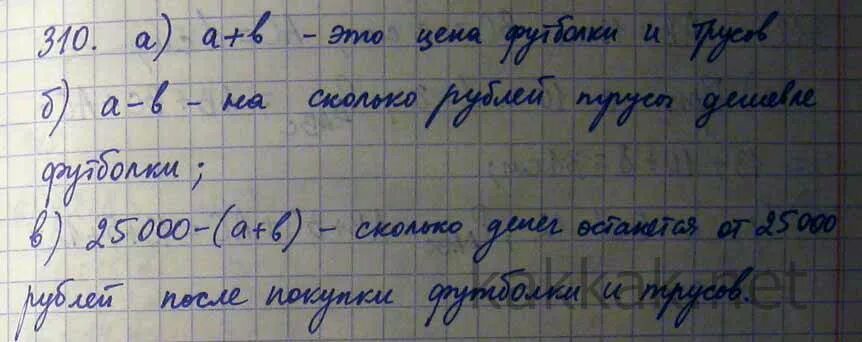 310. а) а+в - это цена футболки и трусов
б) а-в - на сколько рублей трусы дешевле
футболки;
в) 25000-(а+в) - сколько денег останется от 25000
рублей после покупки футболки и трусов.
kakkak.net